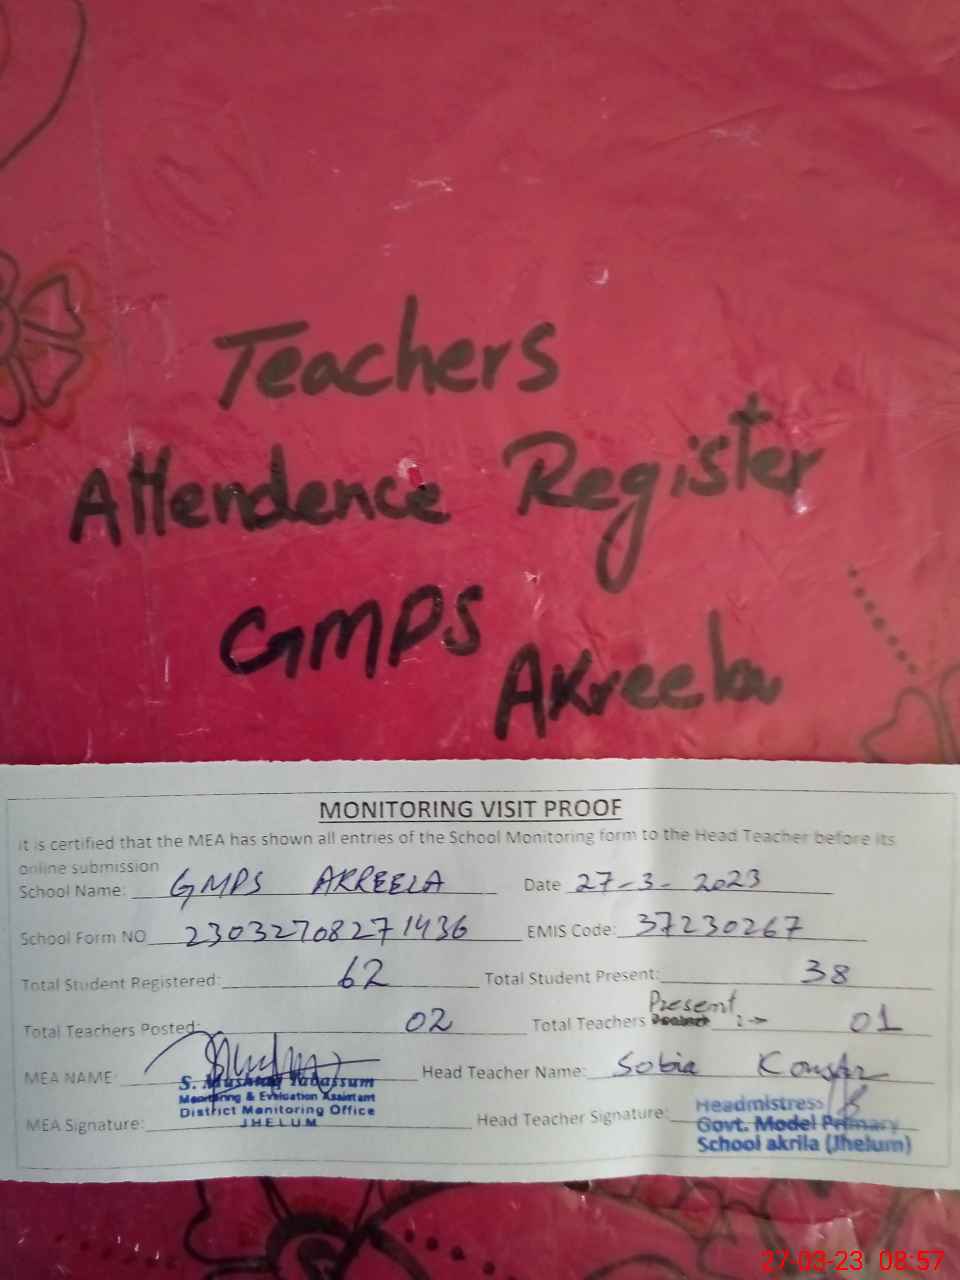 Teachers
Attendence Register
GMPS
Akreela
MONITORING VISIT PROOF
it is certified that the MEA has shown all entries of the School Monitoring form to the Head Teacher before its
online submission
School Name: GMPS AKREELA Date 27-3-2023
School Form NO 2303270827 1436 EMIS Code: 37230267
Total Student Registered: 62 Total Student Present: 38
Total Teachers Posted: 02 Total Teachers Present :- 01
MEA NAME: Head Teacher Name: Sobia Kousar
S. Mushtaq Tabassum
Monitoring & Evaluation Assistant
District Monitoring Office
JHELUM
MEA Signature: Head Teacher Signature:
Headmistress
Govt. Model Primary
School akrila (Jhelum)
27-03-23 08:57